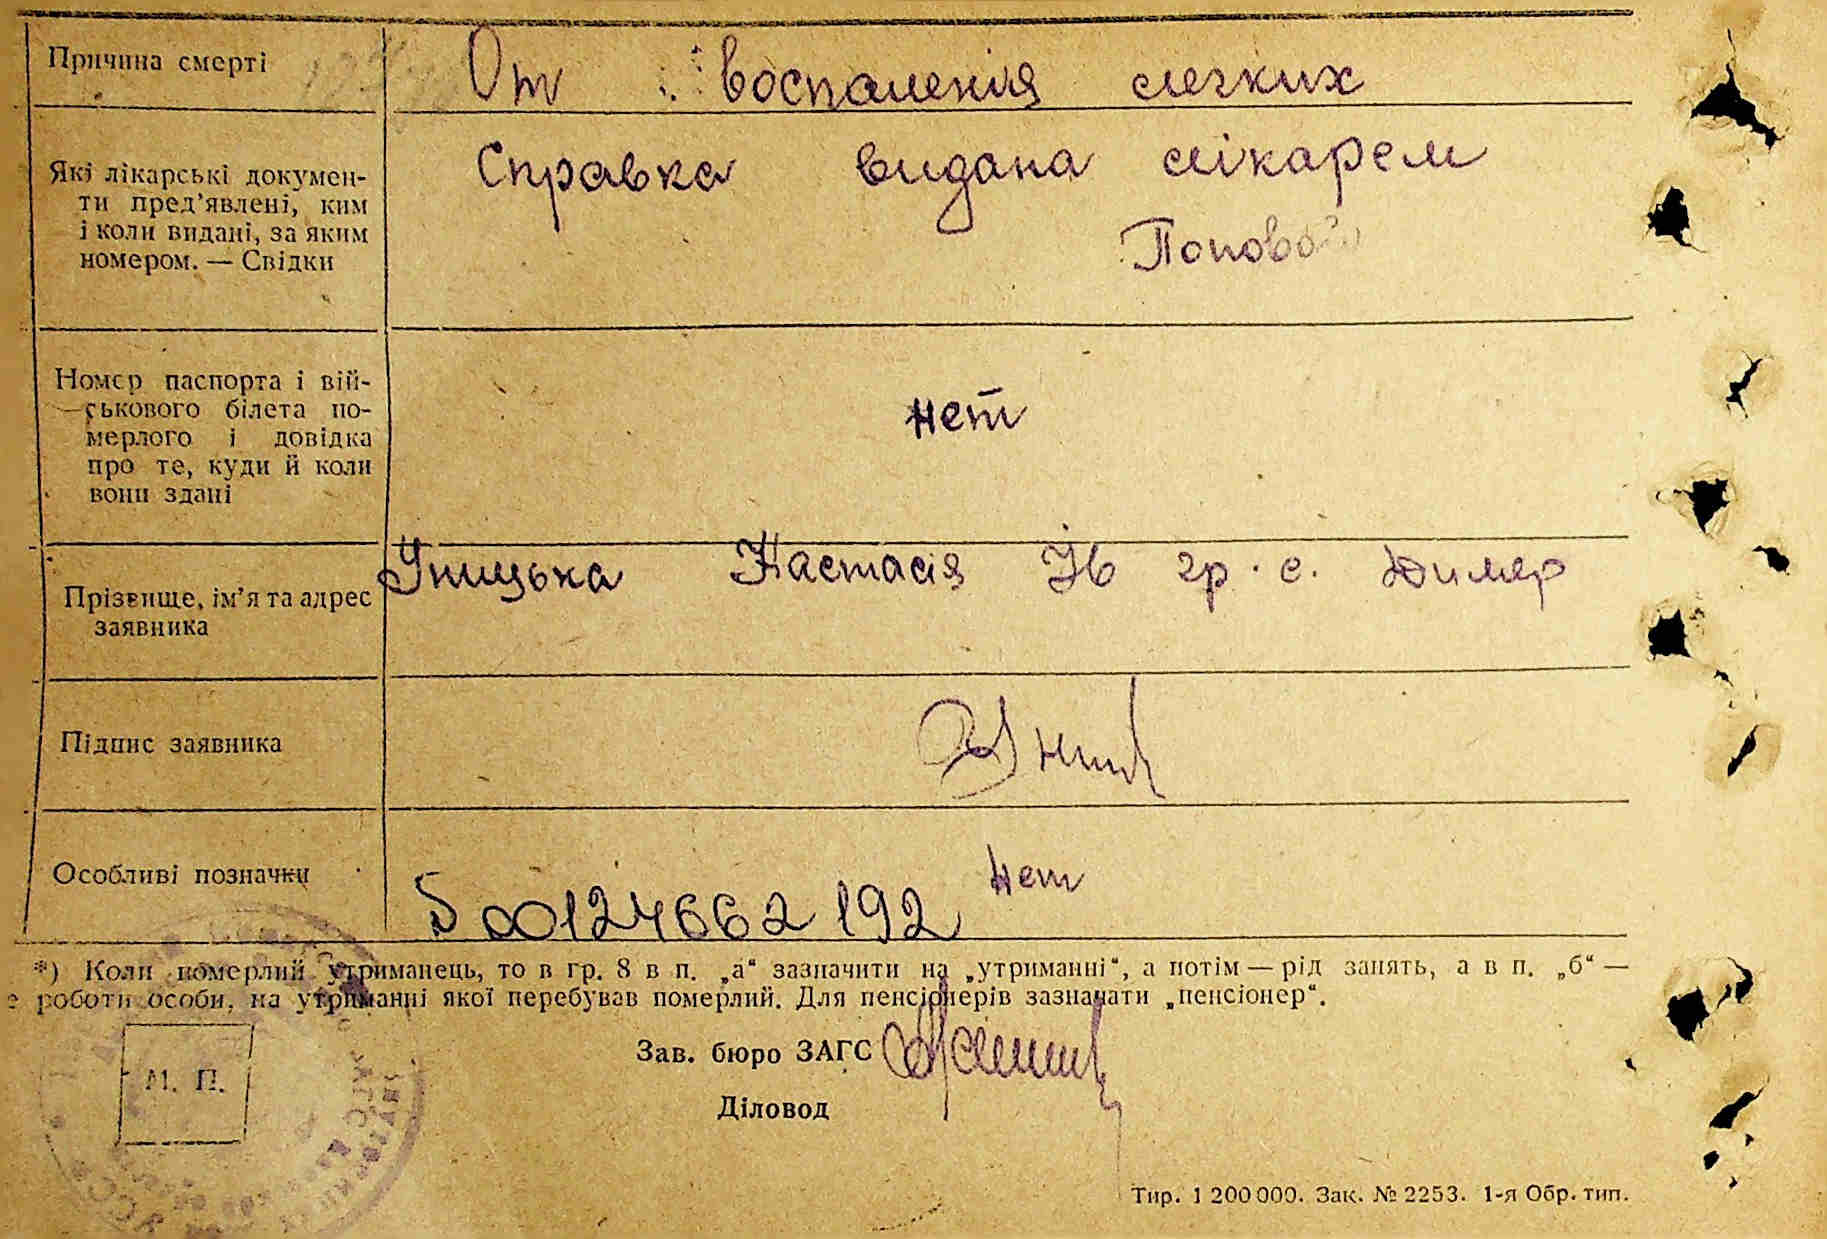 Причина смерті
От воспаленія легких
Які лікарські докумен-
ти пред'явлені, ким
і коли видані, за яким
номером. — Свідки
Справка видана лікарем
Попово
Номер паспорта і вій-
ськового білета по-
мерлого і довідка
про те, куди й коли
вони здані
нет
Прізвище, ім'я та адрес
заявника
Уницька Настасія Ів гр. с. Димер
Підпис заявника
Особливі позначки
нет
5 00124662 192
*) Коли померлий утриманець, то в гр. 8 в п. „а“ зазначити на „утриманні“, а потім — рід занять, а в п. „б“ —
є роботи особи, на утриманні якої перебував померлий. Для пенсіонерів зазначати „пенсіонер“.
Зав. бюро ЗАГС
М. П.
Діловод
Тир. 1 200 000. Зак. № 2253. 1-я Обр. тип.